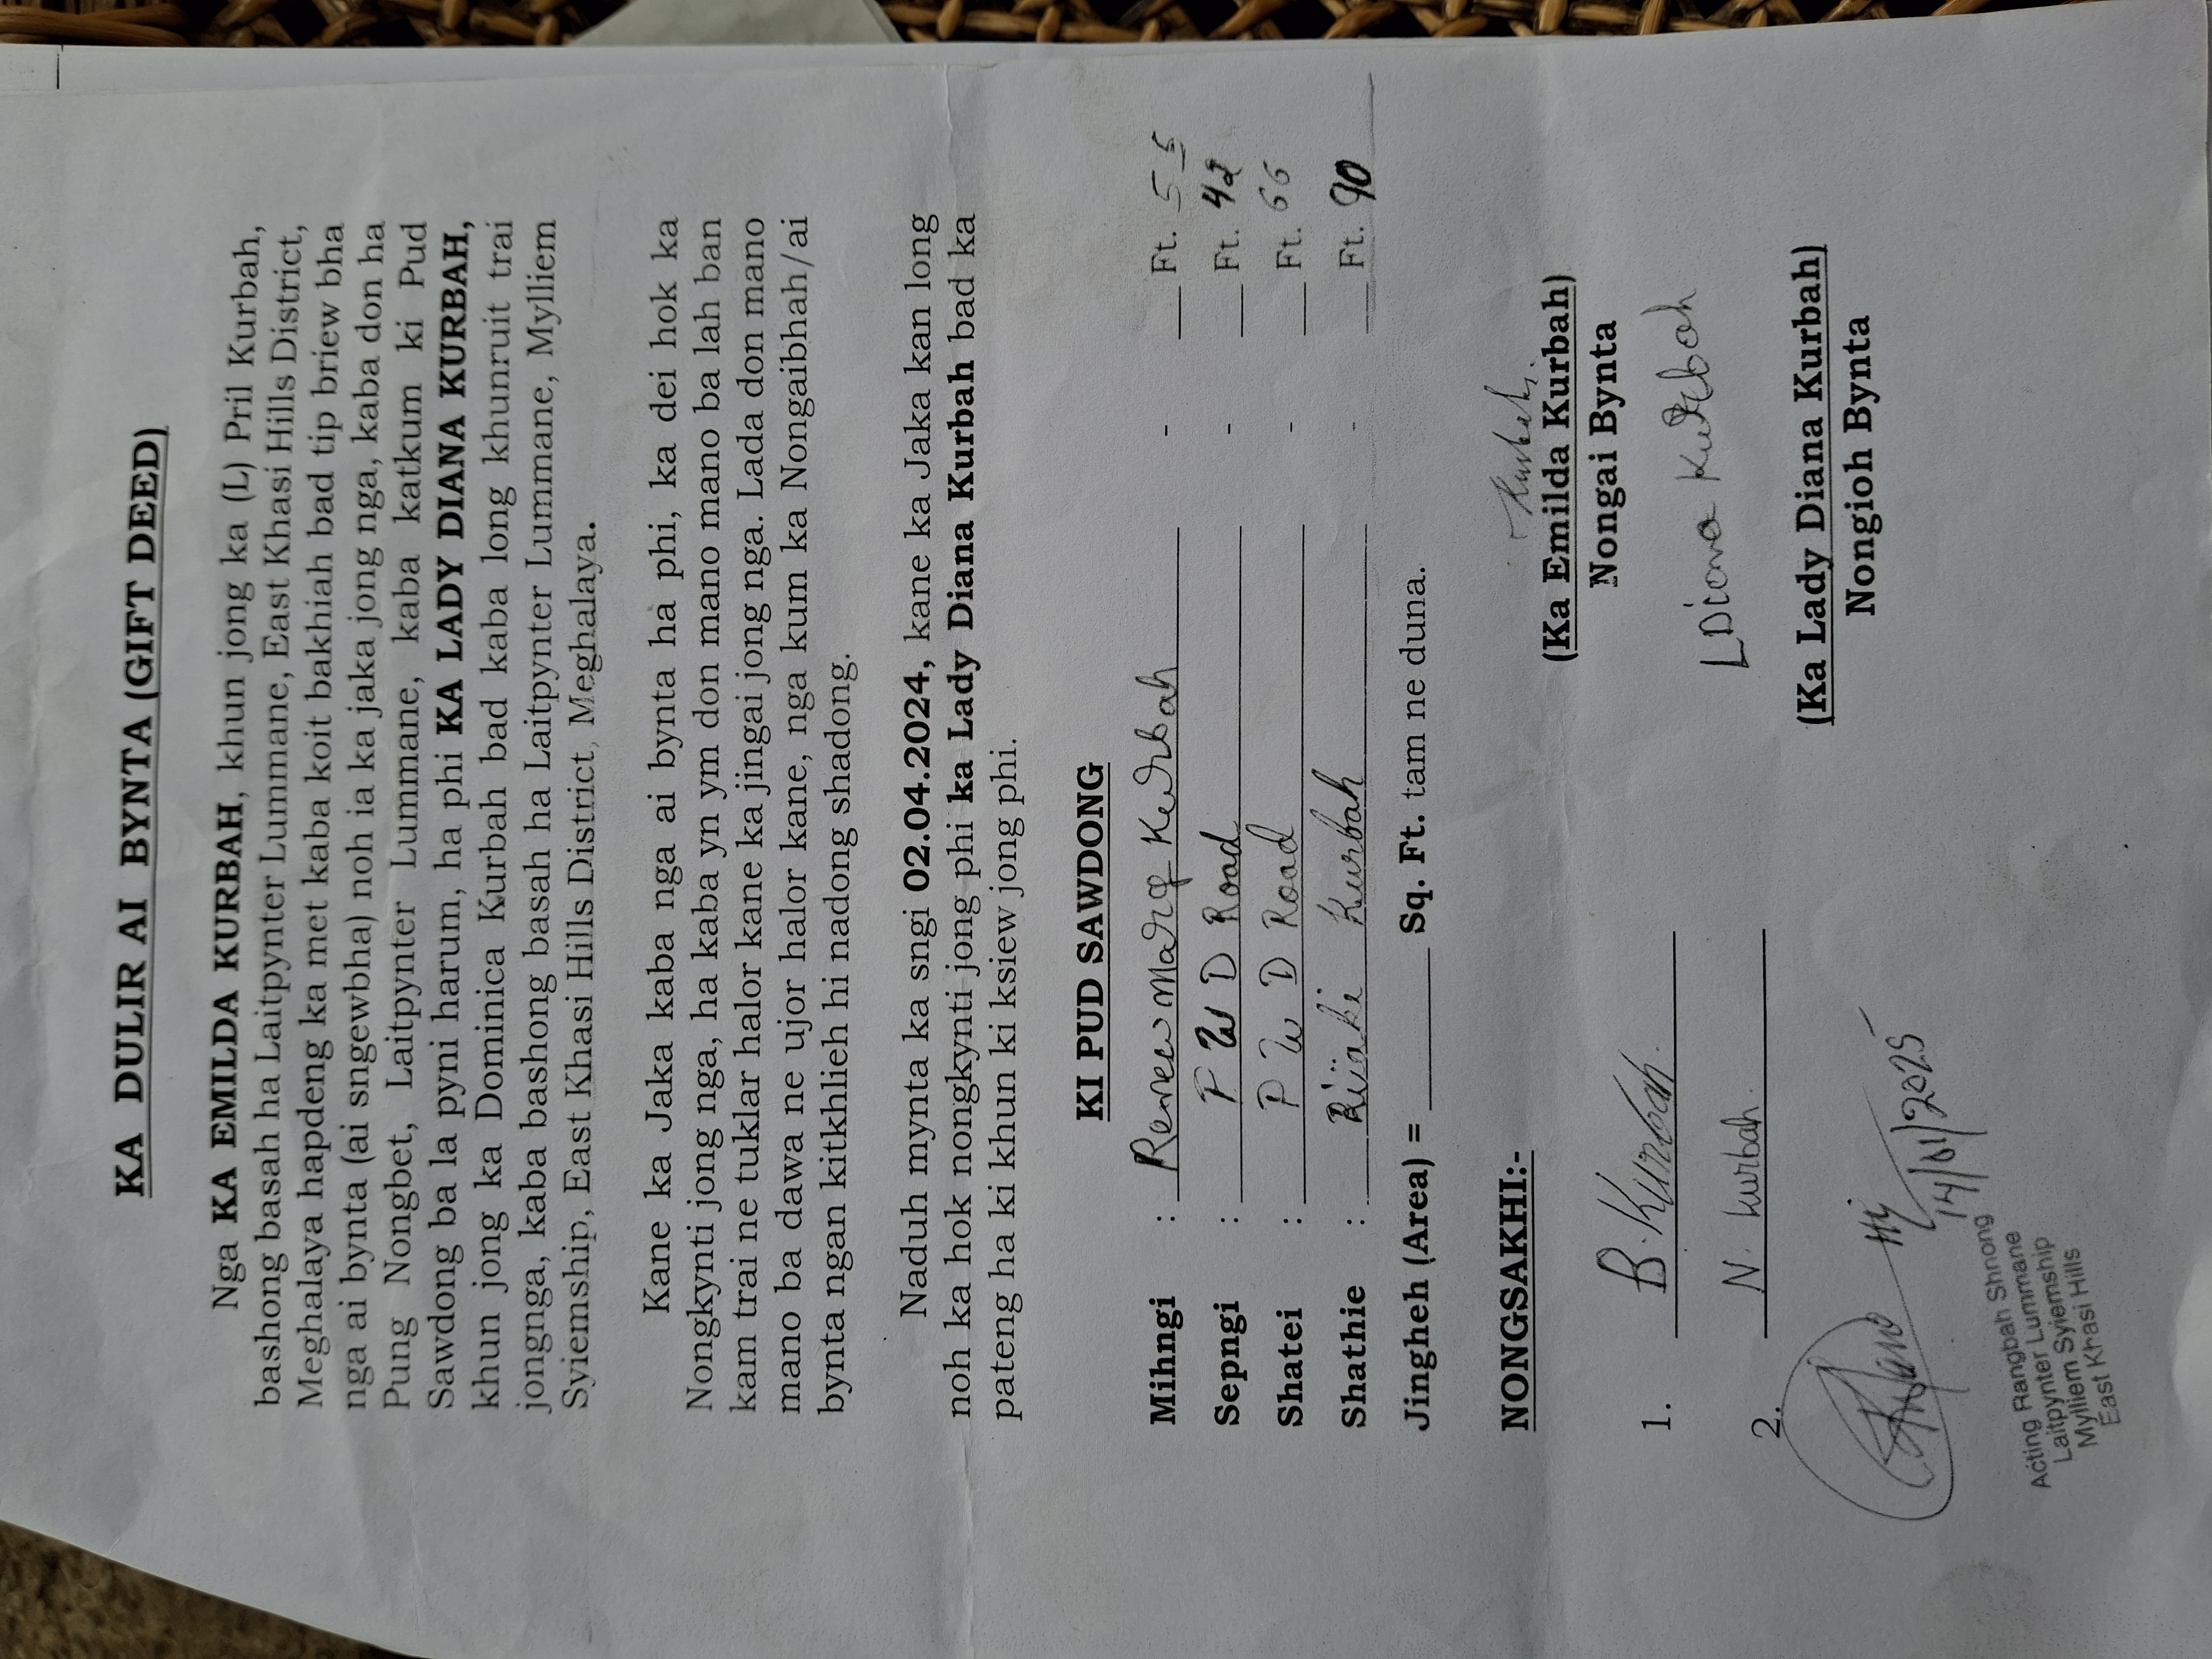 KA DULIR AI BYNTA (GIFT DEED)
Nga KA EMILDA KURBAH, khun jong ka (L) Pril Kurbah,
bashong basah ha Laitpynter Lummane, East Khasi Hills District,
Meghalaya hapdeng ka met kaba koit bakhiah bad tip briew bha
nga ai bynta (ai sngewbha) noh ia ka jaka jong nga, kaba don ha
Pung Nongbet, Laitpynter Lummane, kaba katkum ki Pud
Sawdong ba la pyni harum, ha phi KA LADY DIANA KURBAH,
khun jong ka Dominica Kurbah bad kaba long khunruit trai
jongnga, kaba bashong basah ha Laitpynter Lummane, Mylliem
Syiemship, East Khasi Hills District, Meghalaya.
Kane ka Jaka kaba nga ai bynta ha phi, ka dei hok ka
Nongkynti jong nga, ha kaba yn ym don mano mano ba lah ban
kam trai ne tuklar halor kane ka jingai jong nga. Lada don mano
mano ba dawa ne ujor halor kane, nga kum ka Nongaibhah/ai
bynta ngan kitkhlieh hi nadong shadong.
Naduh mynta ka sngi 02.04.2024, kane ka Jaka kan long
noh ka hok nongkynti jong phi ka Lady Diana Kurbah bad ka
pateng ha ki khun ki ksiew jong phi.
KI PUD SAWDONG
Mihngi : Renewmarq Kurbah - Ft. 55
Sepngi : P W D Road - Ft. 42
Shatei : P W D Road - Ft. 66
Shathie : Riiaki Kurbah - Ft. 90
Jingheh (Area) = Sq. Ft. tam ne duna.
Kurbah.
(Ka Emilda Kurbah)
Nongai Bynta
NONGSAKHI:-
1. B. Kurbah.
LDiana Kurbah
2. N. Kurbah.
(Ka Lady Diana Kurbah)
Nongioh Bynta
14/01/2025
Acting Rangbah Shnong
Laitpynter Lummane
Mylliem Syiemship
East Khasi Hills